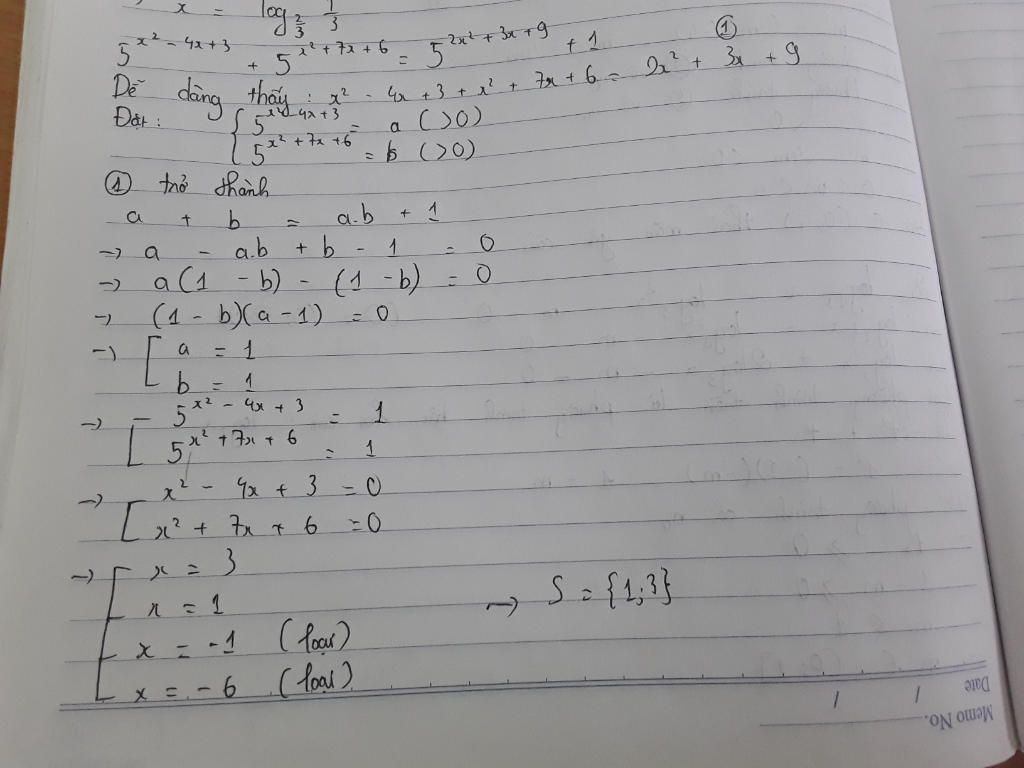 x = log_{2/3} 1/3
5^{x² - 4x + 3} + 5^{x² + 7x + 6} = 5^{2x² + 3x + 9} + 1 ①
Dễ dàng thấy: x² - 4x + 3 + x² + 7x + 6 = 2x² + 3x + 9
Đặt: { 5^{x² - 4x + 3} = a (>0)
5^{x² + 7x + 6} = b (>0)
① trở thành
a + b = a.b + 1
→ a - a.b + b - 1 = 0
→ a(1 - b) - (1 - b) = 0
→ (1 - b)(a - 1) = 0
→ [ a = 1
b = 1
→ [ 5^{x² - 4x + 3} = 1
5^{x² + 7x + 6} = 1
→ [ x² - 4x + 3 = 0
x² + 7x + 6 = 0
→ [ x = 3
x = 1 → S = {1;3}
x = -1 (loại)
x = -6 (loại)
Date / /
Memo No.